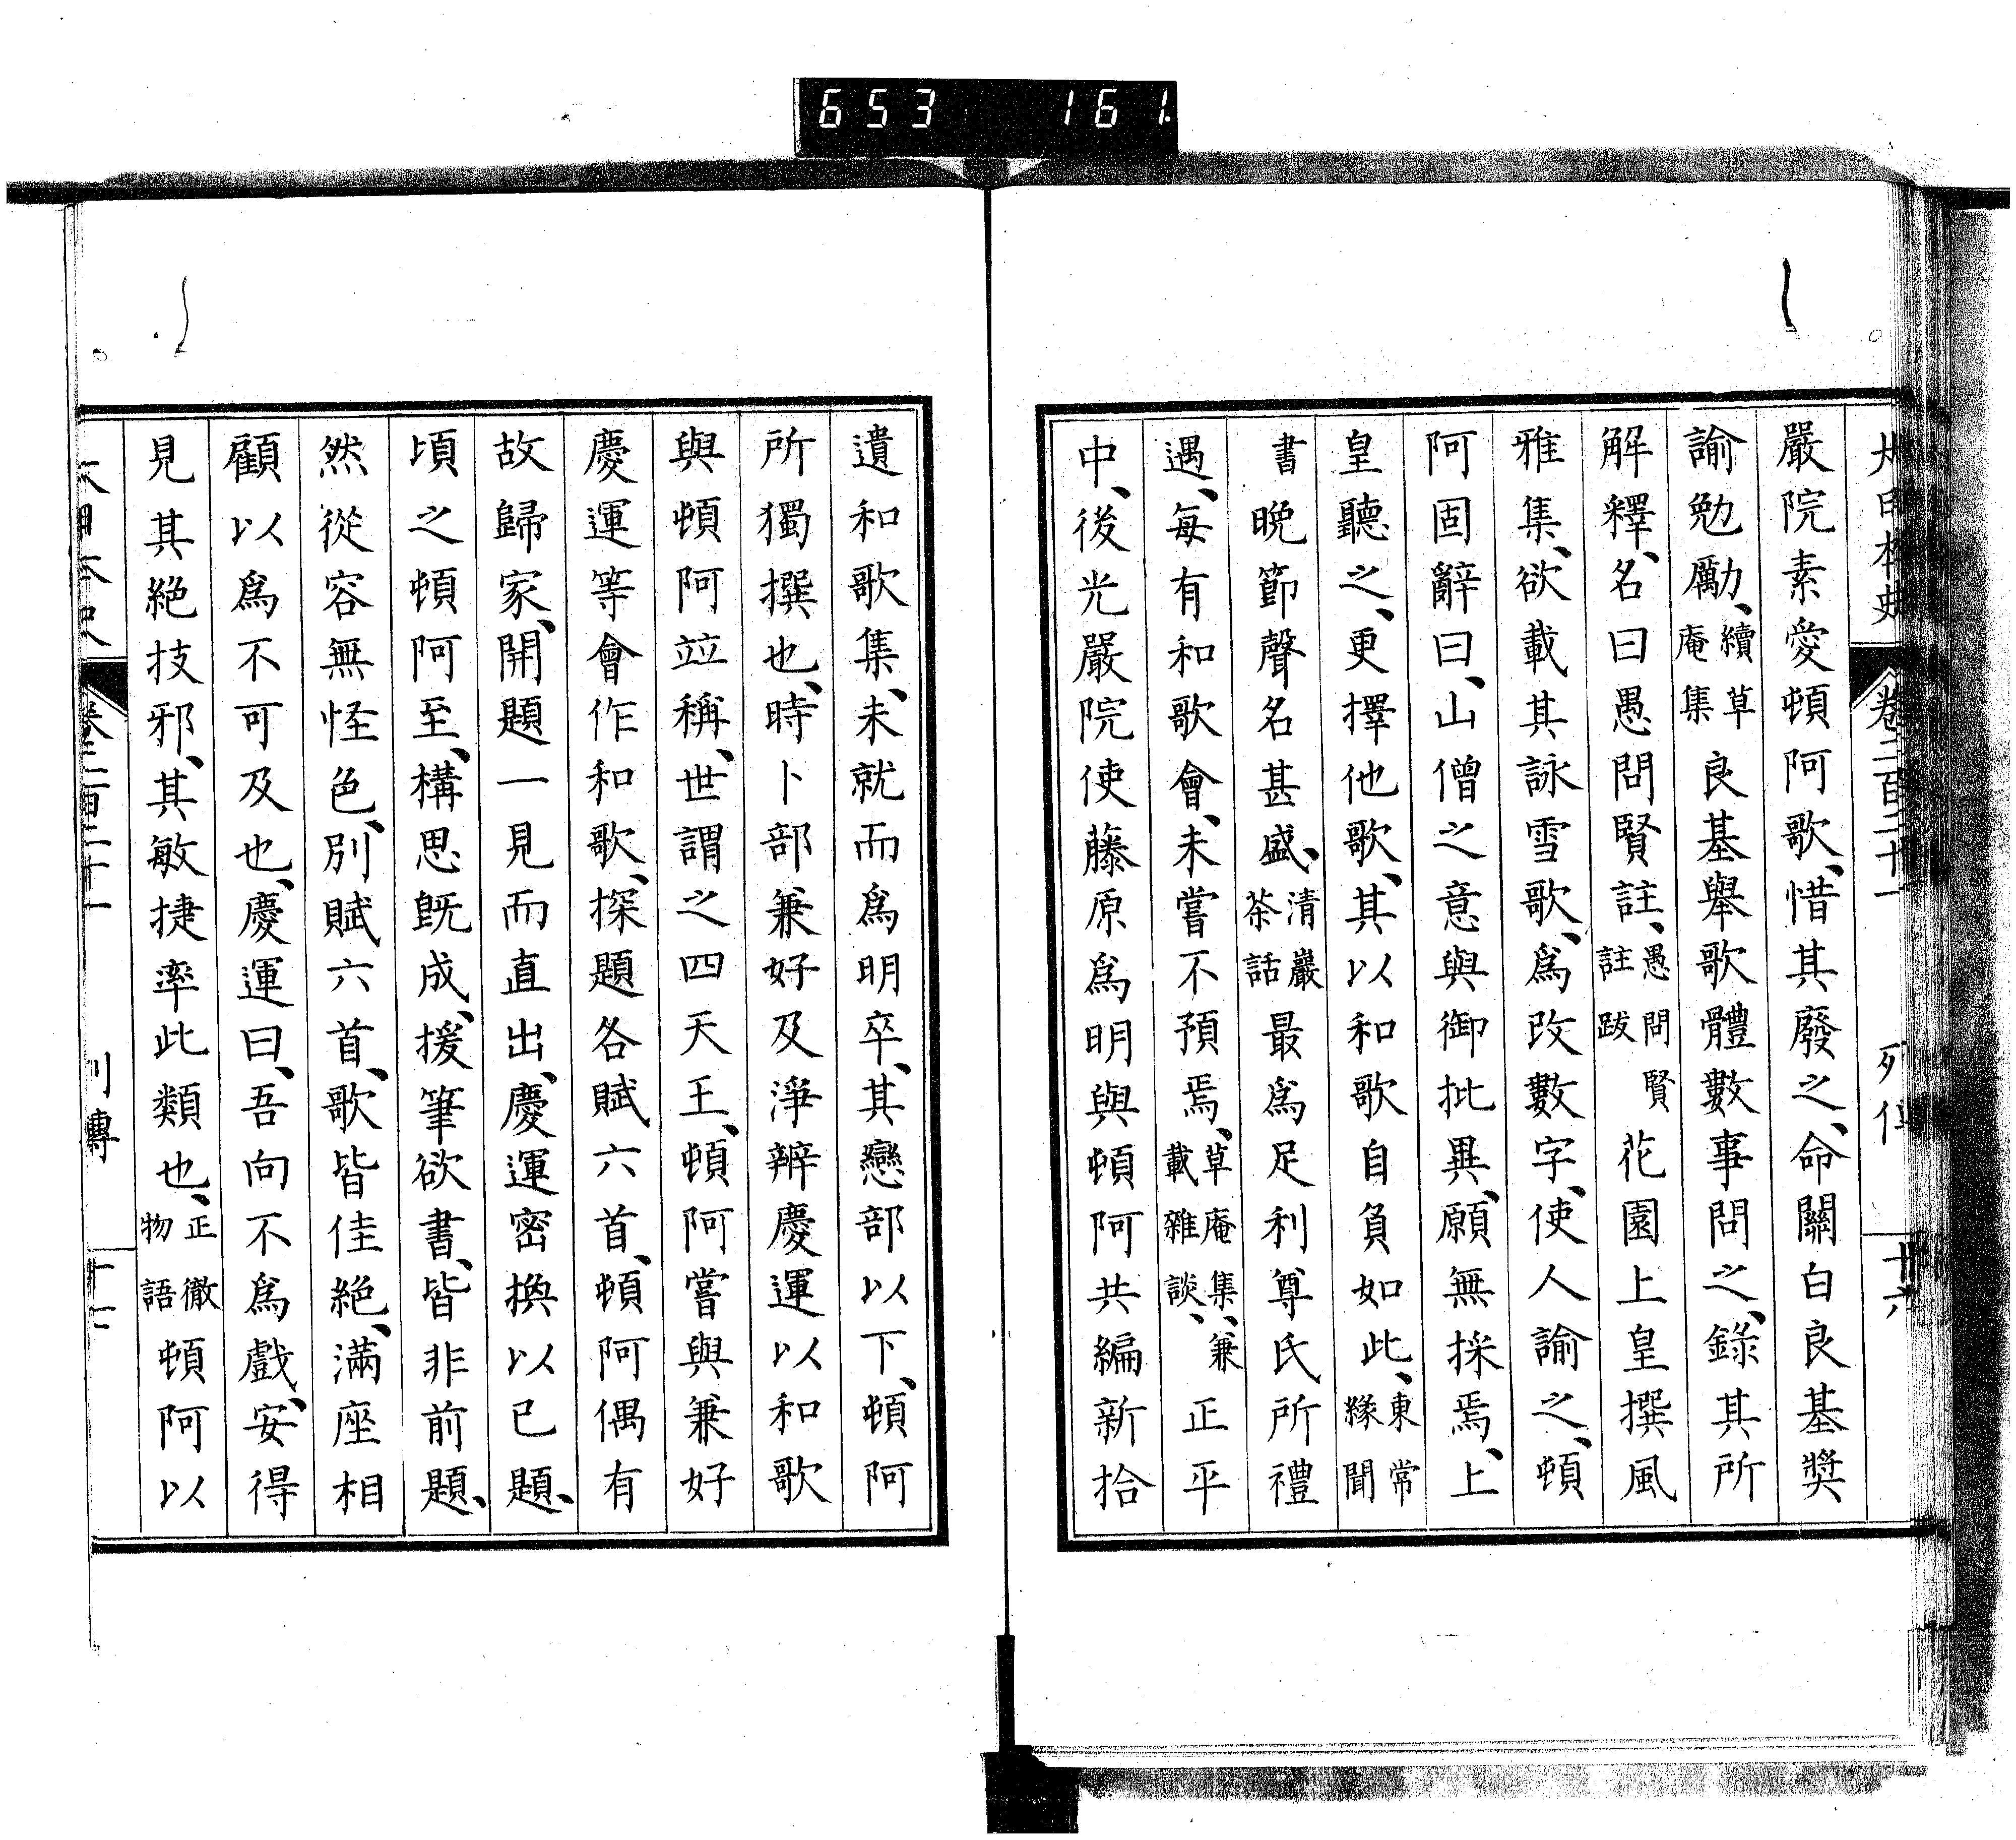 653 161
大日本史 卷二百二十一 列傳 十六
嚴院素愛頓阿歌、惜其廢之、命關白良基奬
諭勉勵、續草庵集良基舉歌體數事問之、錄其所
解釋、名曰愚問賢註、愚問賢註跋花園上皇撰風
雅集、欲載其詠雪歌、爲改數字、使人諭之、頓
阿固辭曰、山僧之意與御批異、願無採焉、上
皇聽之、更擇他歌、其以和歌自負如此、東常緣聞
書晩節聲名甚盛、清巖茶話最爲足利尊氏所禮
遇、每有和歌會、未嘗不預焉、草庵集、兼載雜談、正平
中、後光嚴院使藤原爲明與頓阿共編新拾
遺和歌集、未就而爲明卒、其戀部以下、頓阿
所獨撰也、時卜部兼好及淨辨慶運以和歌
與頓阿竝稱、世謂之四天王、頓阿嘗與兼好
慶運等會作和歌、探題各賦六首、頓阿偶有
故歸家、開題一見而直出、慶運密換以已題、
頃之頓阿至、構思既成、援筆欲書、皆非前題、
然從容無怪色、別賦六首、歌皆佳絕、滿座相
顧以爲不可及也、慶運曰、吾向不爲戲、安得
見其絕技邪、其敏捷率此類也、正徹物語頓阿以
大日本史 卷二百二十一 列傳 十七